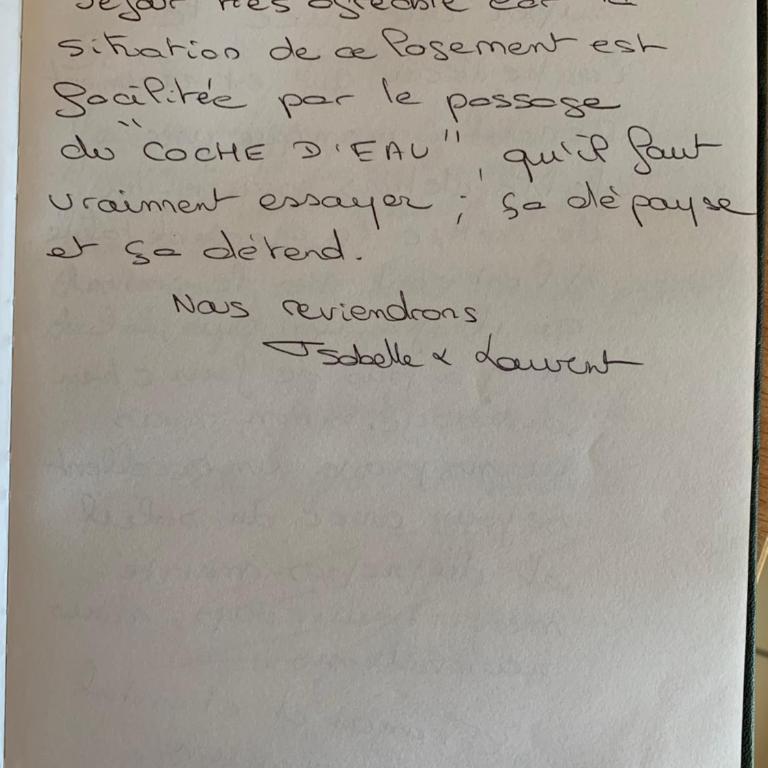 séjour très agréable car la
situation de ce logement est
facilitée par le passage
du "COCHE D'EAU", qu'il faut
vraiment essayer ; sa dépayse
et sa détend.
Nous reviendrons
Isabelle & Laurent